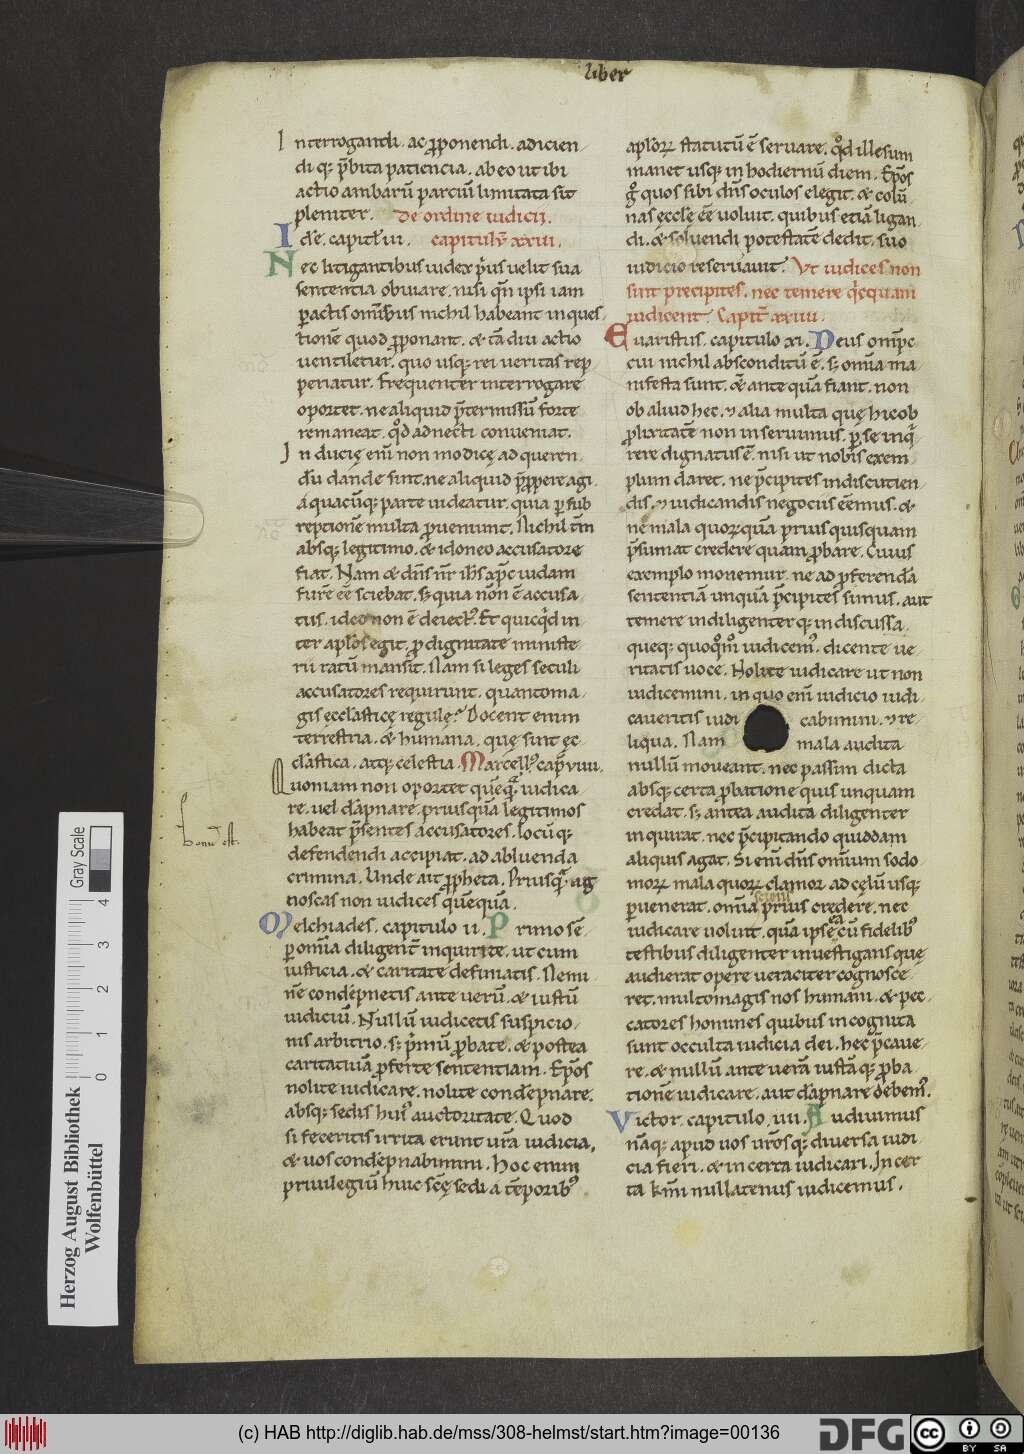 liber
Interrogandi. ac ꝓponendi. adicien
di q; p̄bita patiencia. ab eo ut ibi
actio ambarū parciū limitata sit
pleniter. De ordine iudicii.
Idē. capitł̄ iii. capitulū xxiii.
Nec litigantibus iudex p̄us uelit sua
sententia obuiare. nisi qn̄ ipsi iam
ꝑactis omībus nichil habeant in ques
tionē quod ꝓponant. & tā diu actio
uentiletur. quo usq; rei ueritas rep
periatur. Frequenter interrogare
oportet. ne aliquid p̄termissū forte
remaneat. qd̓ adnecti conueniat.
Induciȩ enī non modicȩ ad queren
dū dande sunt. ne aliquid p̄ꝓpere agi
a quacūq; parte uideatur. quia ꝑ sub
reptionē multa ꝓueniunt. Nichil tm̄
absq; legitimo. & idoneo accusatore
fiat. Nam & dn̄s nr̄ ihs xp̄c iudam
furē eē sciebat. s; quia non ē accusa
tus. ideo non ē deiect9. Et quicqd in
ter apl̄os egit. ꝓ dignitate ministe
rii ratū mansit. Nam si leges seculi
accusatores requirunt. quantoma
gis ȩcclȩsticȩ regulȩ? Docent enim
terrestria. & humana. quȩ sint ȩc
clāstica. atq; celestia. Marcell9 cap̄ viiii.
Quoniam non oportet quēq̄; iudica
re. uel dāpnare. priusquā legitimos
habeat p̄sentes accusatores. locū q;
defendendi accipiat. ad abluenda
crimina. Unde ait ꝓpheta. Priusq̄ ag
noscas non iudices quēquā.
Melchiades. capitulo ii. Primo sē
ꝑ omīa diligent̄ inquirite. ut cum
iusticia. & caritate definiatis. Nemi
nē condēpnetis ante uerū. & iustū
iudiciū. Nullū iudicetis suspicio
nis arbitrio. s; p̄mū ꝓbate. & postea
caritatiuā ꝓferte sententiam. Ep̄os
nolite iudicare. nolite condēpnare.
absq; sedis hui9 auctoritate. Quod
si feceritis irrita erunt ur̄a iudicia,
& uos condēpnabimini. Hoc enim
priuilegiū huic scȩ̄ sedi a tēporib9
bonū est.
apl̓oꝝ statutū ē seruare. qd̓ illesum
manet usq; in hodiernū diem. Ep̄os
g̊ quos sibi dn̄s oculos elegit. & colū
nas eccl̄e eē uoluit. quibus etiā ligan
di. & soluendi potestatē dedit. suo
iudicio reseruauit. Vt iudices non
sint precipites. nec temere q̓cquam
iudicent. Capit̄ xxiiii.
Evaristus. capitulo xi. Deus omp̄c
cui nichil absconditū ē. s; omīa ma
nifesta sunt. & ante quā fiant. non
ob aliud hec. ⁊ alia multa quȩ hic ob
ꝓlixitatē non inseruimus. ꝑ se inq̓
rere dignatus ē. nisi ut nobis exem
plum daret. ne p̄cipites in discutien
dis. ⁊ iudicandis negociis eēmus. &
ne mala quorꝝquā prius quisquam
p̄sumat credere quam ꝓbare. Cuius
exemplo monemur. ne ad ꝓferendā
sententiā unquā p̄cipites simus. aut
temere indiligenterq; indiscussa
queq; quoqm̊ iudicem9. dicente ue
ritatis uoce. Nolite iudicare ut non
iudicemini. in quo enī iudicio iudi
caueritis iudi cabimini. ⁊ re
liqua. Nam mala audita
nullū moueant. nec passim dicta
absq; certa ꝓbatione quis unquam
credat. s; antea audita diligenter
inquirat. nec p̄cipitando quiddam
aliquis agat. Si enī dn̄s omnium sodo
moꝝ mala quoꝝ clamor ad cȩlū usq;
ꝑuenerat. omīa prius credere. nec
iudicare uoluit. quā ipse cū fidelib9
testibus diligenter inuestigans quȩ
audierat opere ueraciter cognosce
ret. multomagis nos humani. & pec
catores homines quibus incognita
sunt occulta iudicia dei. hec p̄caue
re. & nullū ante uerā iustāq; ꝓba
tionē iudicare. aut dāpnare debem9.
Victor. capitulo. iiii. Audiuimus
nāq; apud uos ur̄osq; diuersa iudi
cia fieri. & incerta iudicari. Incer
ta km̄i nullatenus iudicemus.
Gray Scale
4
3
2
1
0
Herzog August Bibliothek
Wolfenbüttel
(c) HAB http://diglib.hab.de/mss/308-helmst/start.htm?image=00136
DFG
cc
BY SA